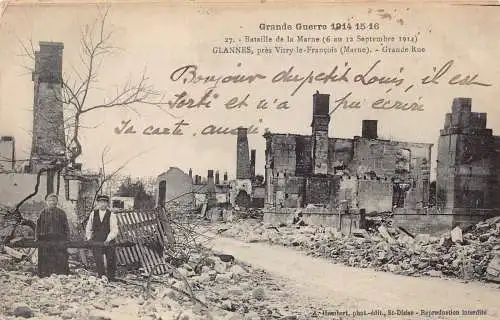 Grande Guerre 1914-15-16
27. - Bataille de la Marne (6 au 12 Septembre 1914)
GLANNES, près Vitry-le-François (Marne). - Grande Rue
Bonjour du petit Louis, il est
sorti et n'a pu écrire
sa carte, aussi
A. Humbert, phot.-édit., St-Dizier - Reproduction interdite